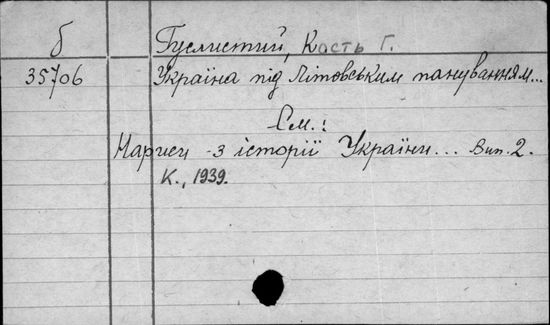 б Гуслистий, Кость Г.
35706 Україна під Літовським пануванням...
См.:
Нариси з історії України... Вип. 2.
К., 1939.